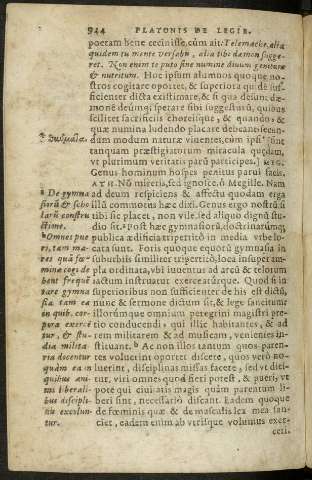 944 PLATONIS DE LEGIB.
poetam bene cecinisse, cùm ait: Telemache, alia
quidem tu mente versabis, alia tibi dæmon sugge-
ret. Non enim te puto sine numine divum genitum
& nutritum. Hoc ipsum alumnos quoque no-
stros cogitare oportet, & superiora quidē suf-
ficienter dicta existimare, & si qua desunt, dæ-
monē deúmq; sperare sibi suggesturū, quibus
scilicet sacrificiis choreisque, & quando, & 
quæ numina ludendo placare debeant: secun-
dùm modum naturæ viuentes, cùm ipsi sint
tanquam præstigiatorum miracula quædam,
vt plurimum veritatis parū participes.] MEG.
Genus hominum hospes penitus parui facis.
ATH. Nō mireris, sed ignosce, ô Megille. Nam
ad deum respiciens & affectu quodam erga
illū commotus hæc dixi. Genus ergo nostrū si
tibi sic placet, non vile, sed aliquo dignū stu-
dio sit. Post hæc gymnasiorū, doctrinarúmq;
publica ædificia tripertitò in media vrbe lo-
cata sunt. Foris quoque equorū gymnasia in
suburbiis similiter tripertitò, loca insuper am-
pla ordinata, vbi iuuentus ad arcū & telorum
iactum instruatur exerceatúrque. Quod si in
superioribus non sufficienter de his est dictū,
nunc & sermone dictum sit, & lege sancitum:
illorúmque omnium peregrini magistri pre-
tio conducendi, qui illic habitantes, & ad
rem militarem & ad musicam, venientes in-
stituant. b Ac non illos tantum quos paren-
tes voluerint oportet discere, quos verò no-
luerint, disciplinas missas facere, sed vt dici-
tur, viri omnes quod fieri potest, & pueri, vt
pote qui ciuitatis magis quàm parentum li-
beri sint, necessariò discant. Eadem quoque
de fœminis quæ & de masculis lex mea san-
ciet, eadem enim ab vtrisque volumus exer-
ceri.
a De gymna
siorū & scho
larū constru
ctione.
b Omnes pue
ri, tam ma-
res quā fœ-
minæ cogi de
bent frequē
tare gymna
sia tam ea
in quib. cor-
pora exercē
tur, & stu-
dia milita
ria docentur
quàm ea in
quibus ani-
mi liberali-
bus discipli-
nis excolun-
tur.